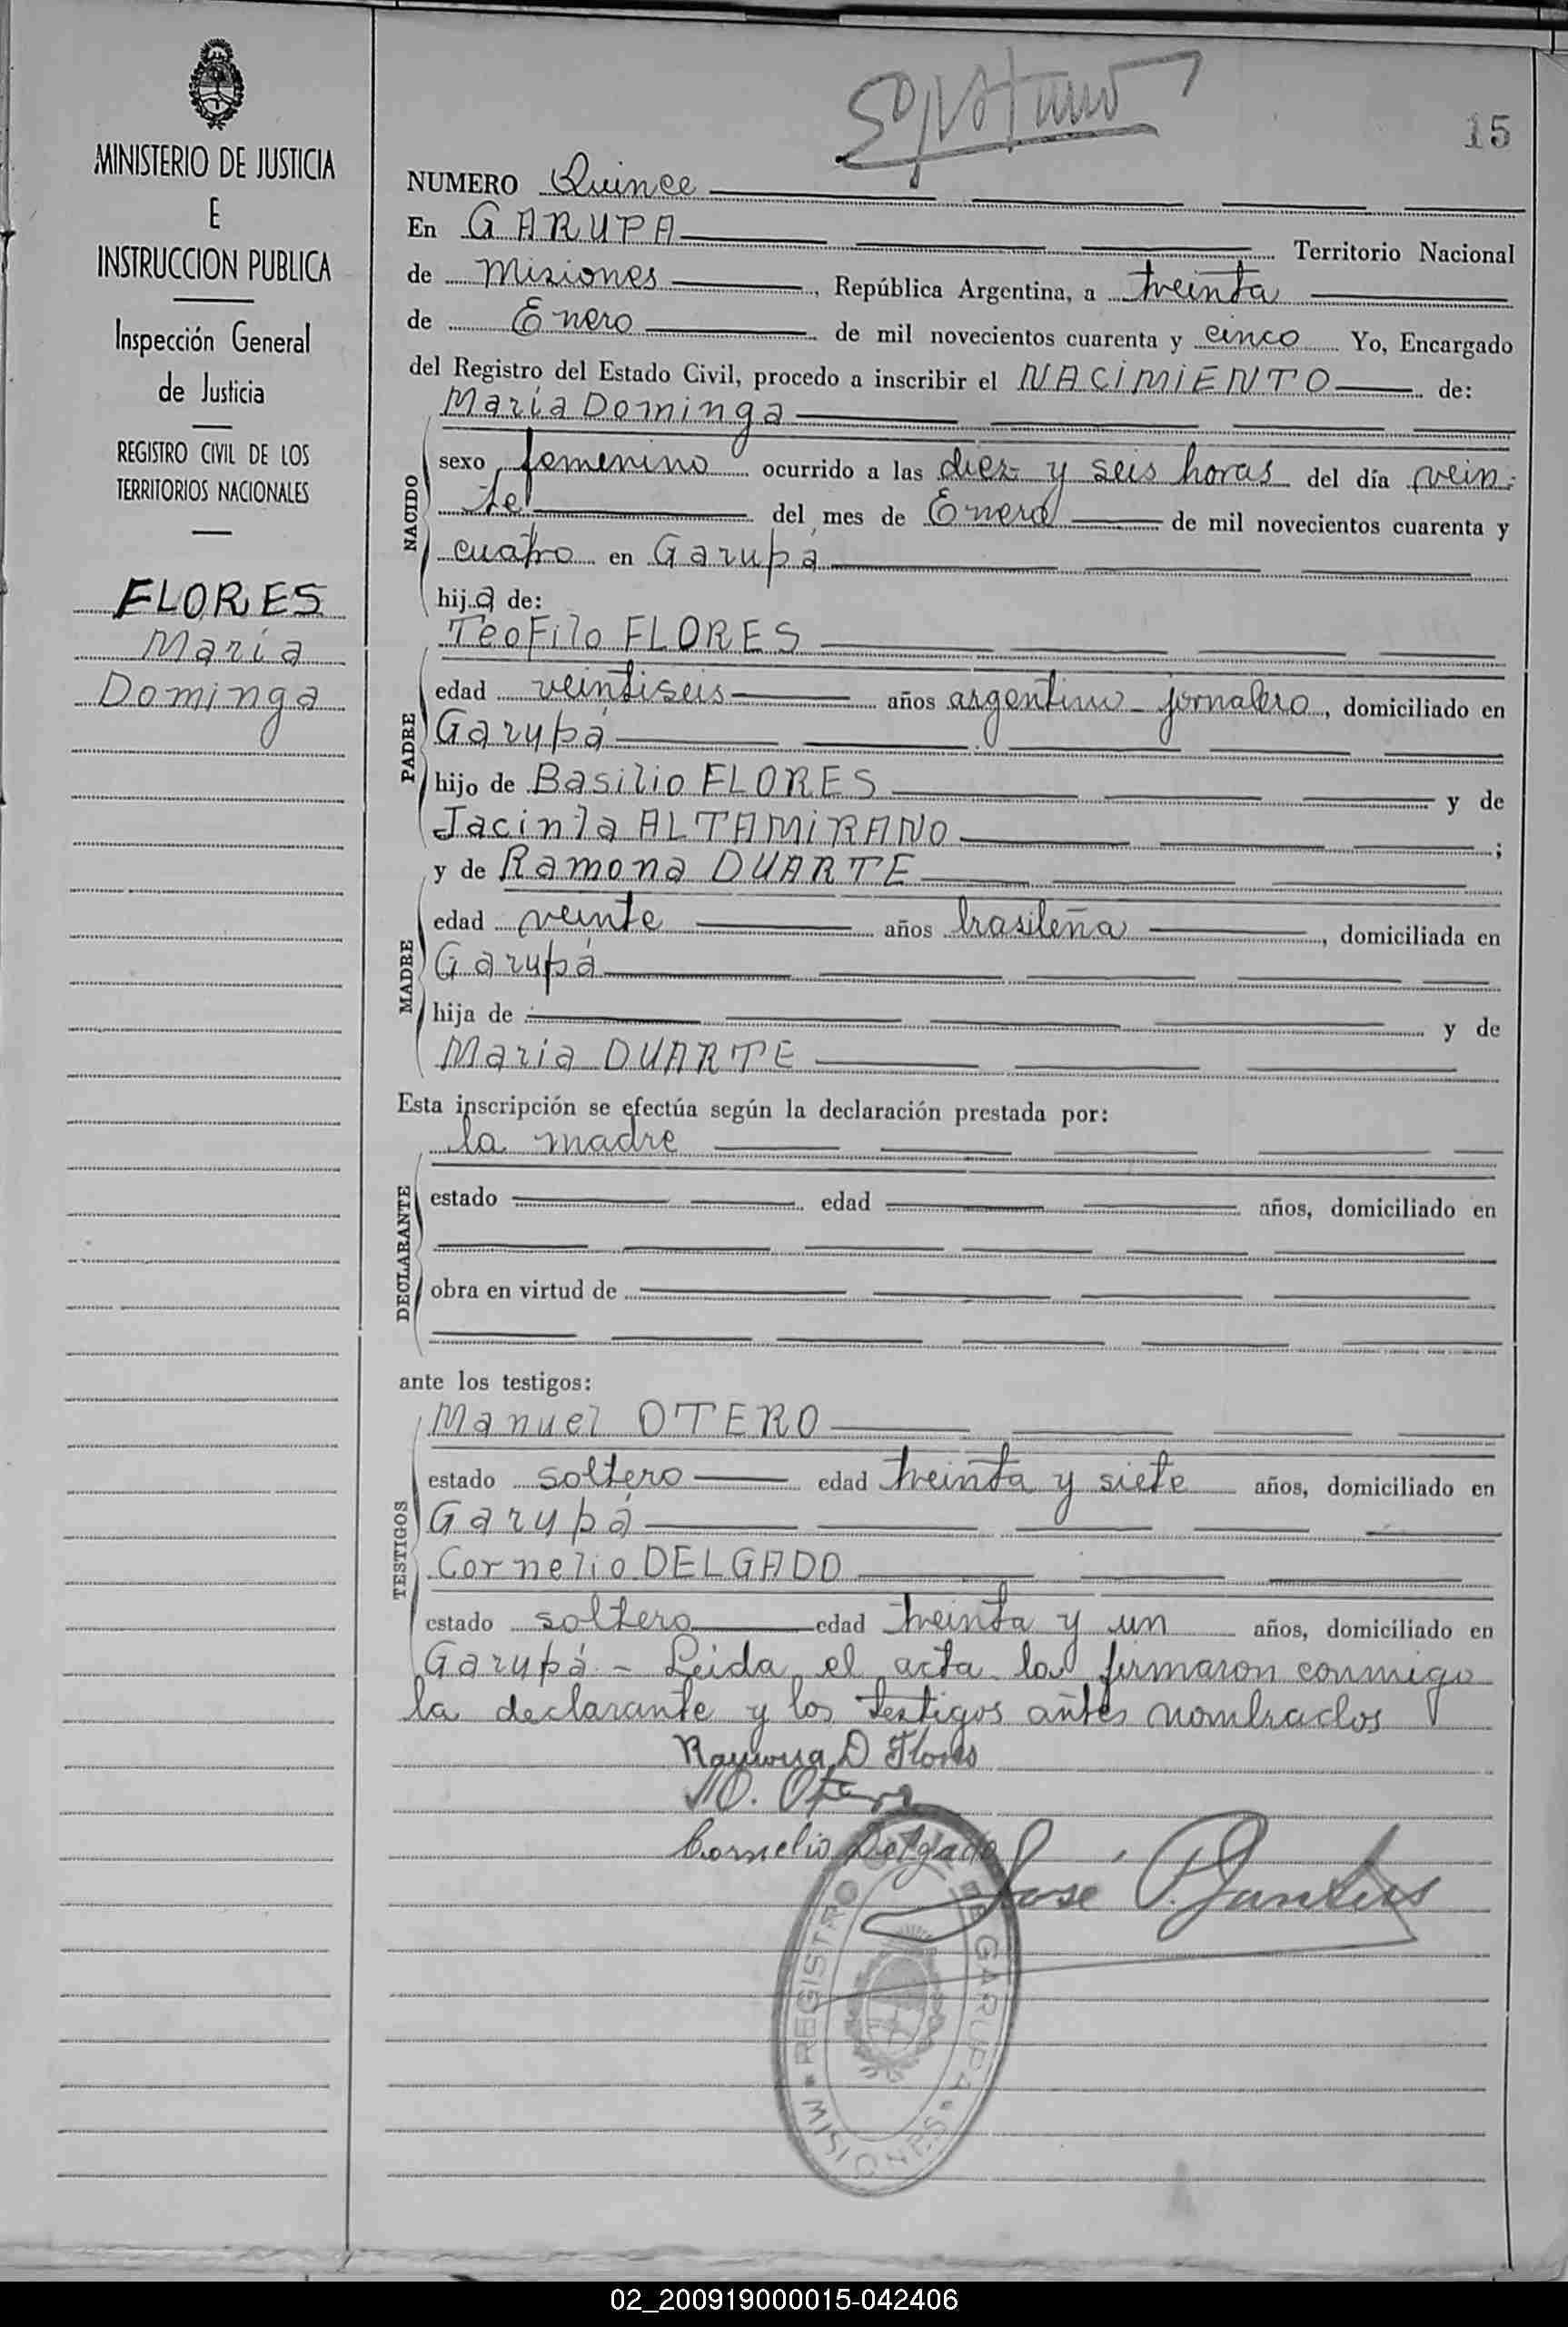 MINISTERIO DE JUSTICIA
E
INSTRUCCION PUBLICA
Inspección General
de Justicia
REGISTRO CIVIL DE LOS
TERRITORIOS NACIONALES
FLORES
María
Dominga
15
NUMERO Quince
En GARUPA Territorio Nacional
de Misiones, República Argentina, a treinta
de Enero de mil novecientos cuarenta y cinco Yo, Encargado
del Registro del Estado Civil, procedo a inscribir el NACIMIENTO de:
María Dominga
NACIDO
sexo femenino ocurrido a las diez y seis horas del día vein-
te del mes de Enero de mil novecientos cuarenta y
cuatro en Garupá
hija de:
Teofilo FLORES
PADRE
edad veintiseis años argentino - jornalero, domiciliado en
Garupá
hijo de Basilio FLORES y de
Jacinta ALTAMIRANO ;
y de Ramona DUARTE
MADRE
edad veinte años brasileña, domiciliada en
Garupá
hija de y de
Maria DUARTE
Esta inscripción se efectúa según la declaración prestada por:
la madre
DECLARANTE
estado edad años, domiciliado en
obra en virtud de
ante los testigos:
Manuel OTERO
TESTIGOS
estado soltero edad treinta y siete años, domiciliado en
Garupá
Cornelio DELGADO
estado soltero edad treinta y un años, domiciliado en
Garupá - Leida el acta la firmaron conmigo
la declarante y los testigos antes nombrados
Ramona D Flores
M. Otero
Cornelio Delgado
José P.
REGISTRO GARUPA
MISIONES
02_200919000015-042406